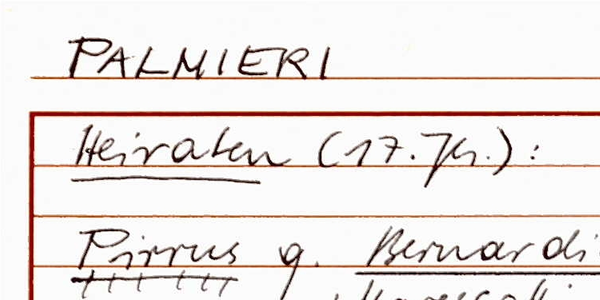 PALMIERI
Heiraten (17. Jh.):
Pirrus q. Bernardi